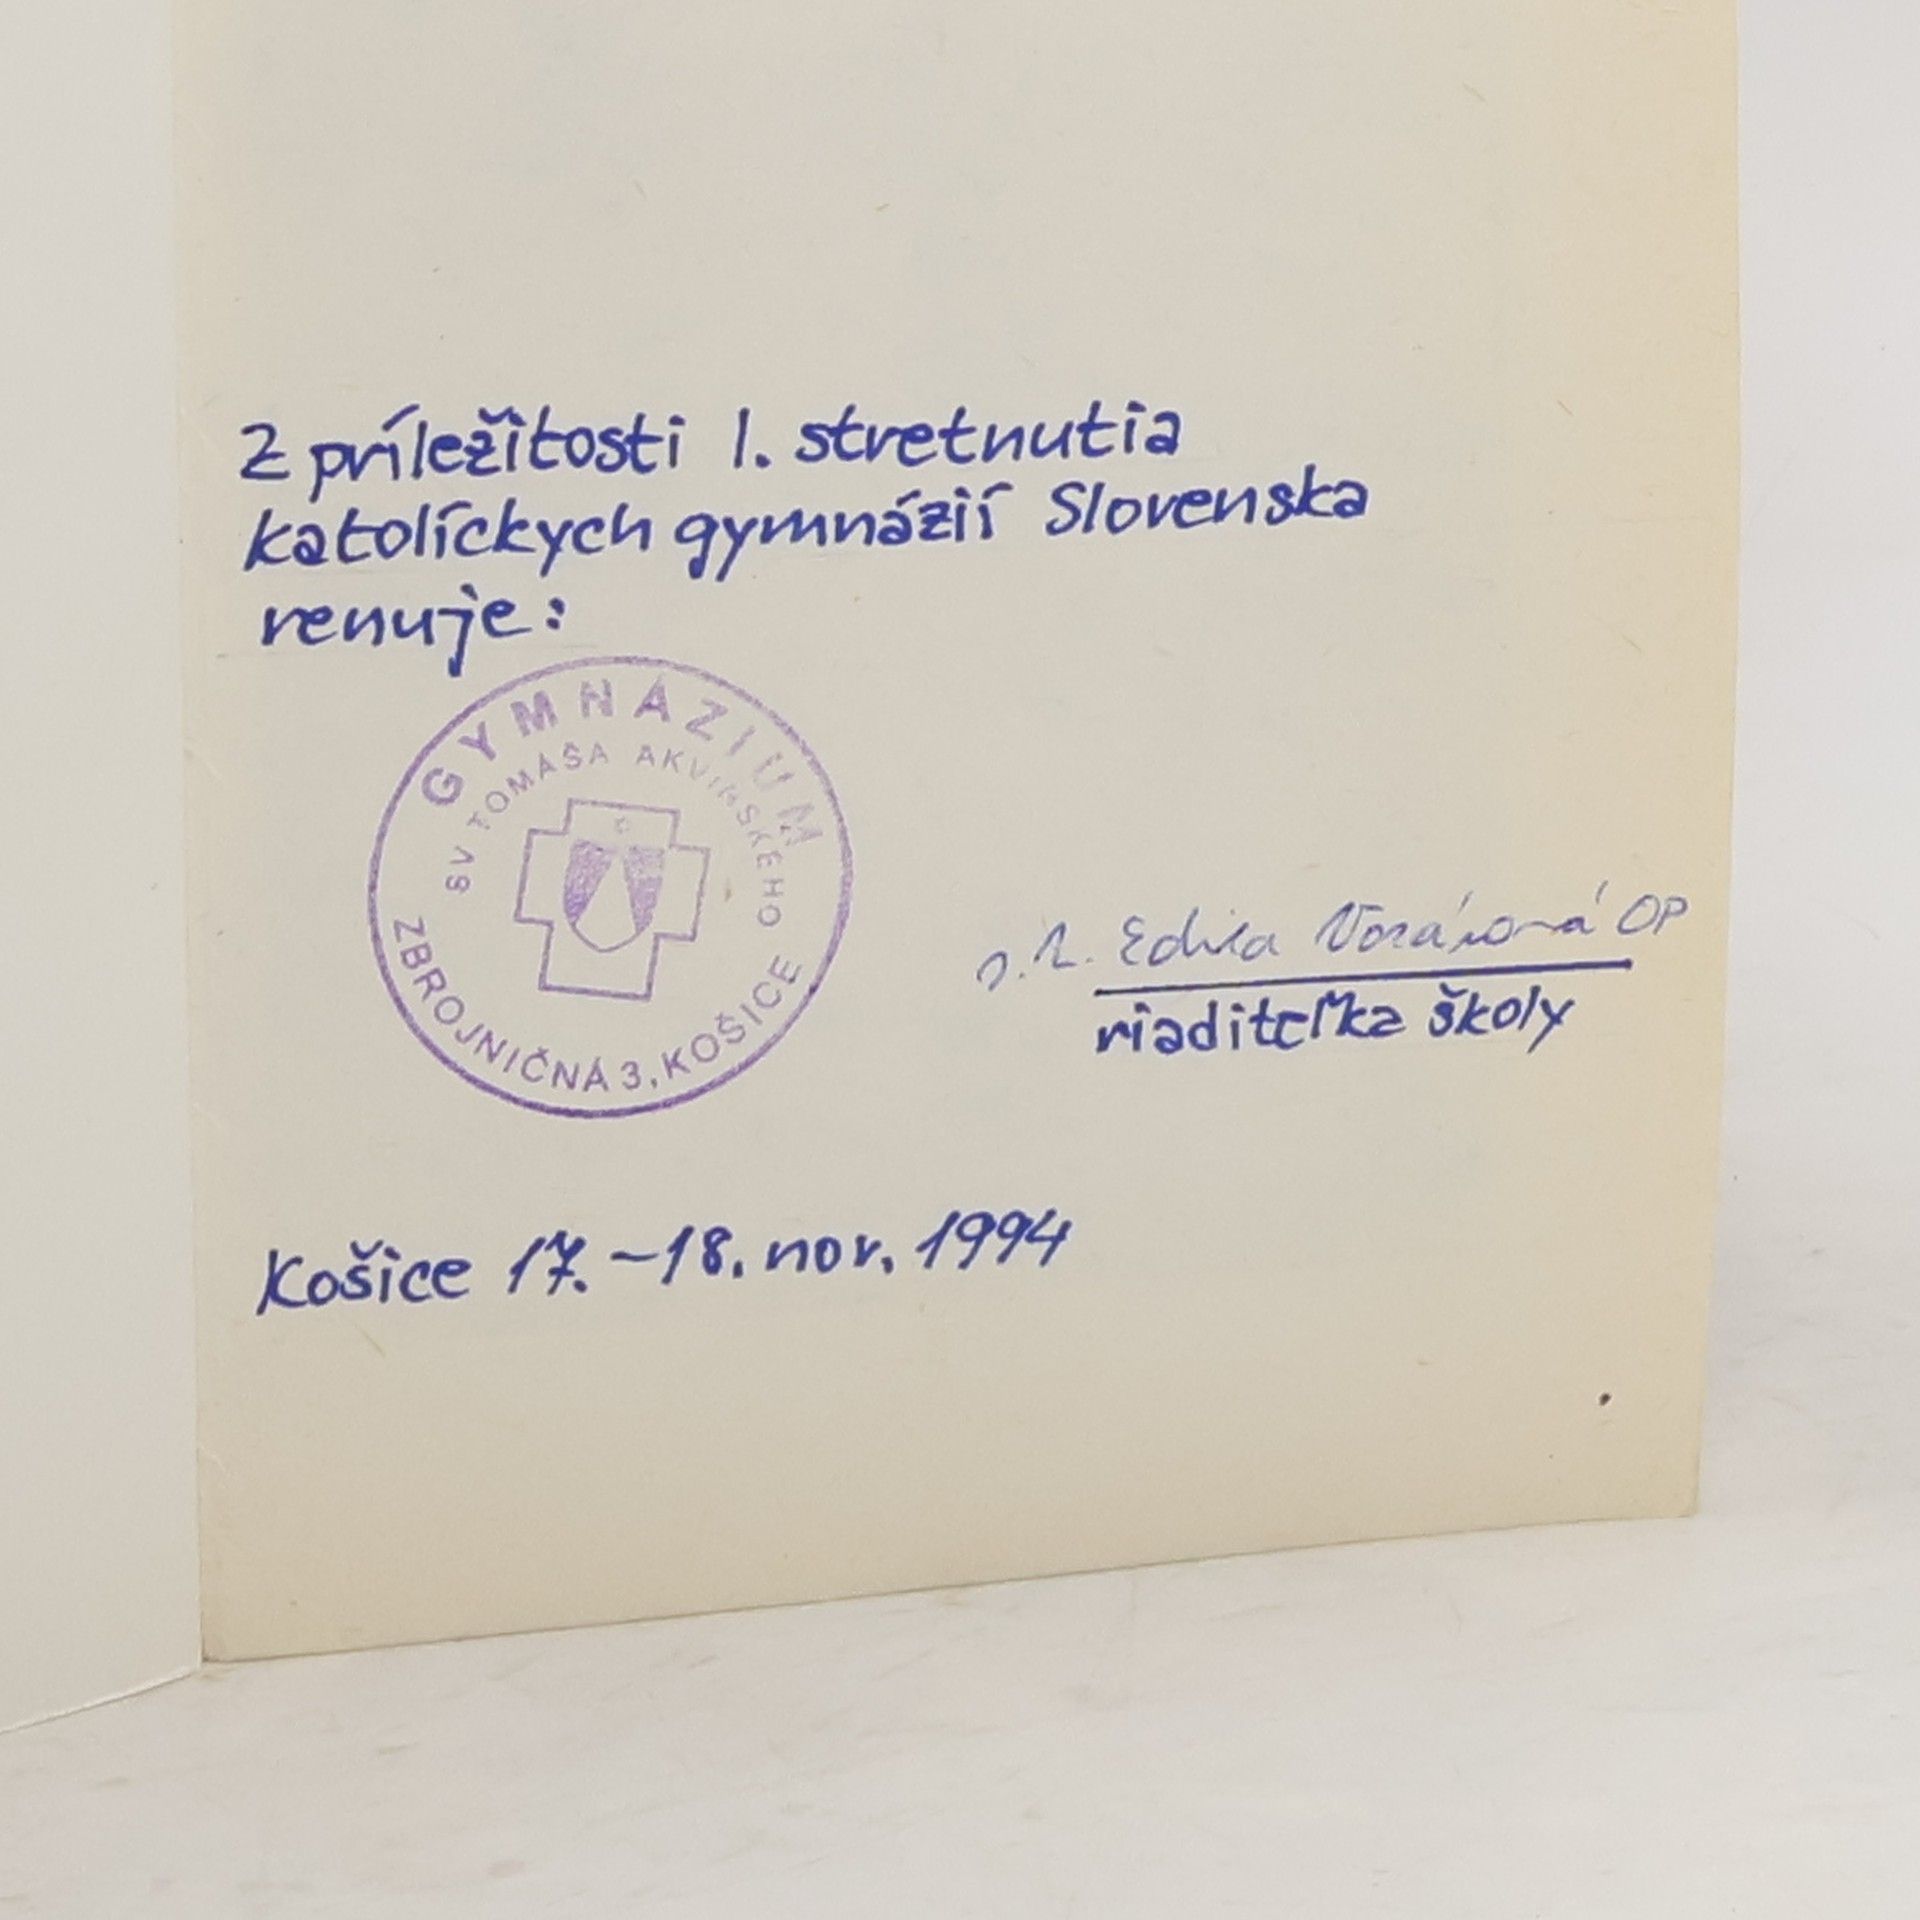 Z príležitosti I. stretnutia
katolíckych gymnázií Slovenska
venuje:
GYMNÁZIUM
SV TOMÁŠA AKVINSKÉHO
ZBROJNIČNÁ 3, KOŠICE
Edita Vozárová OP
riaditeľka školy
Košice 17.-18. nov. 1994